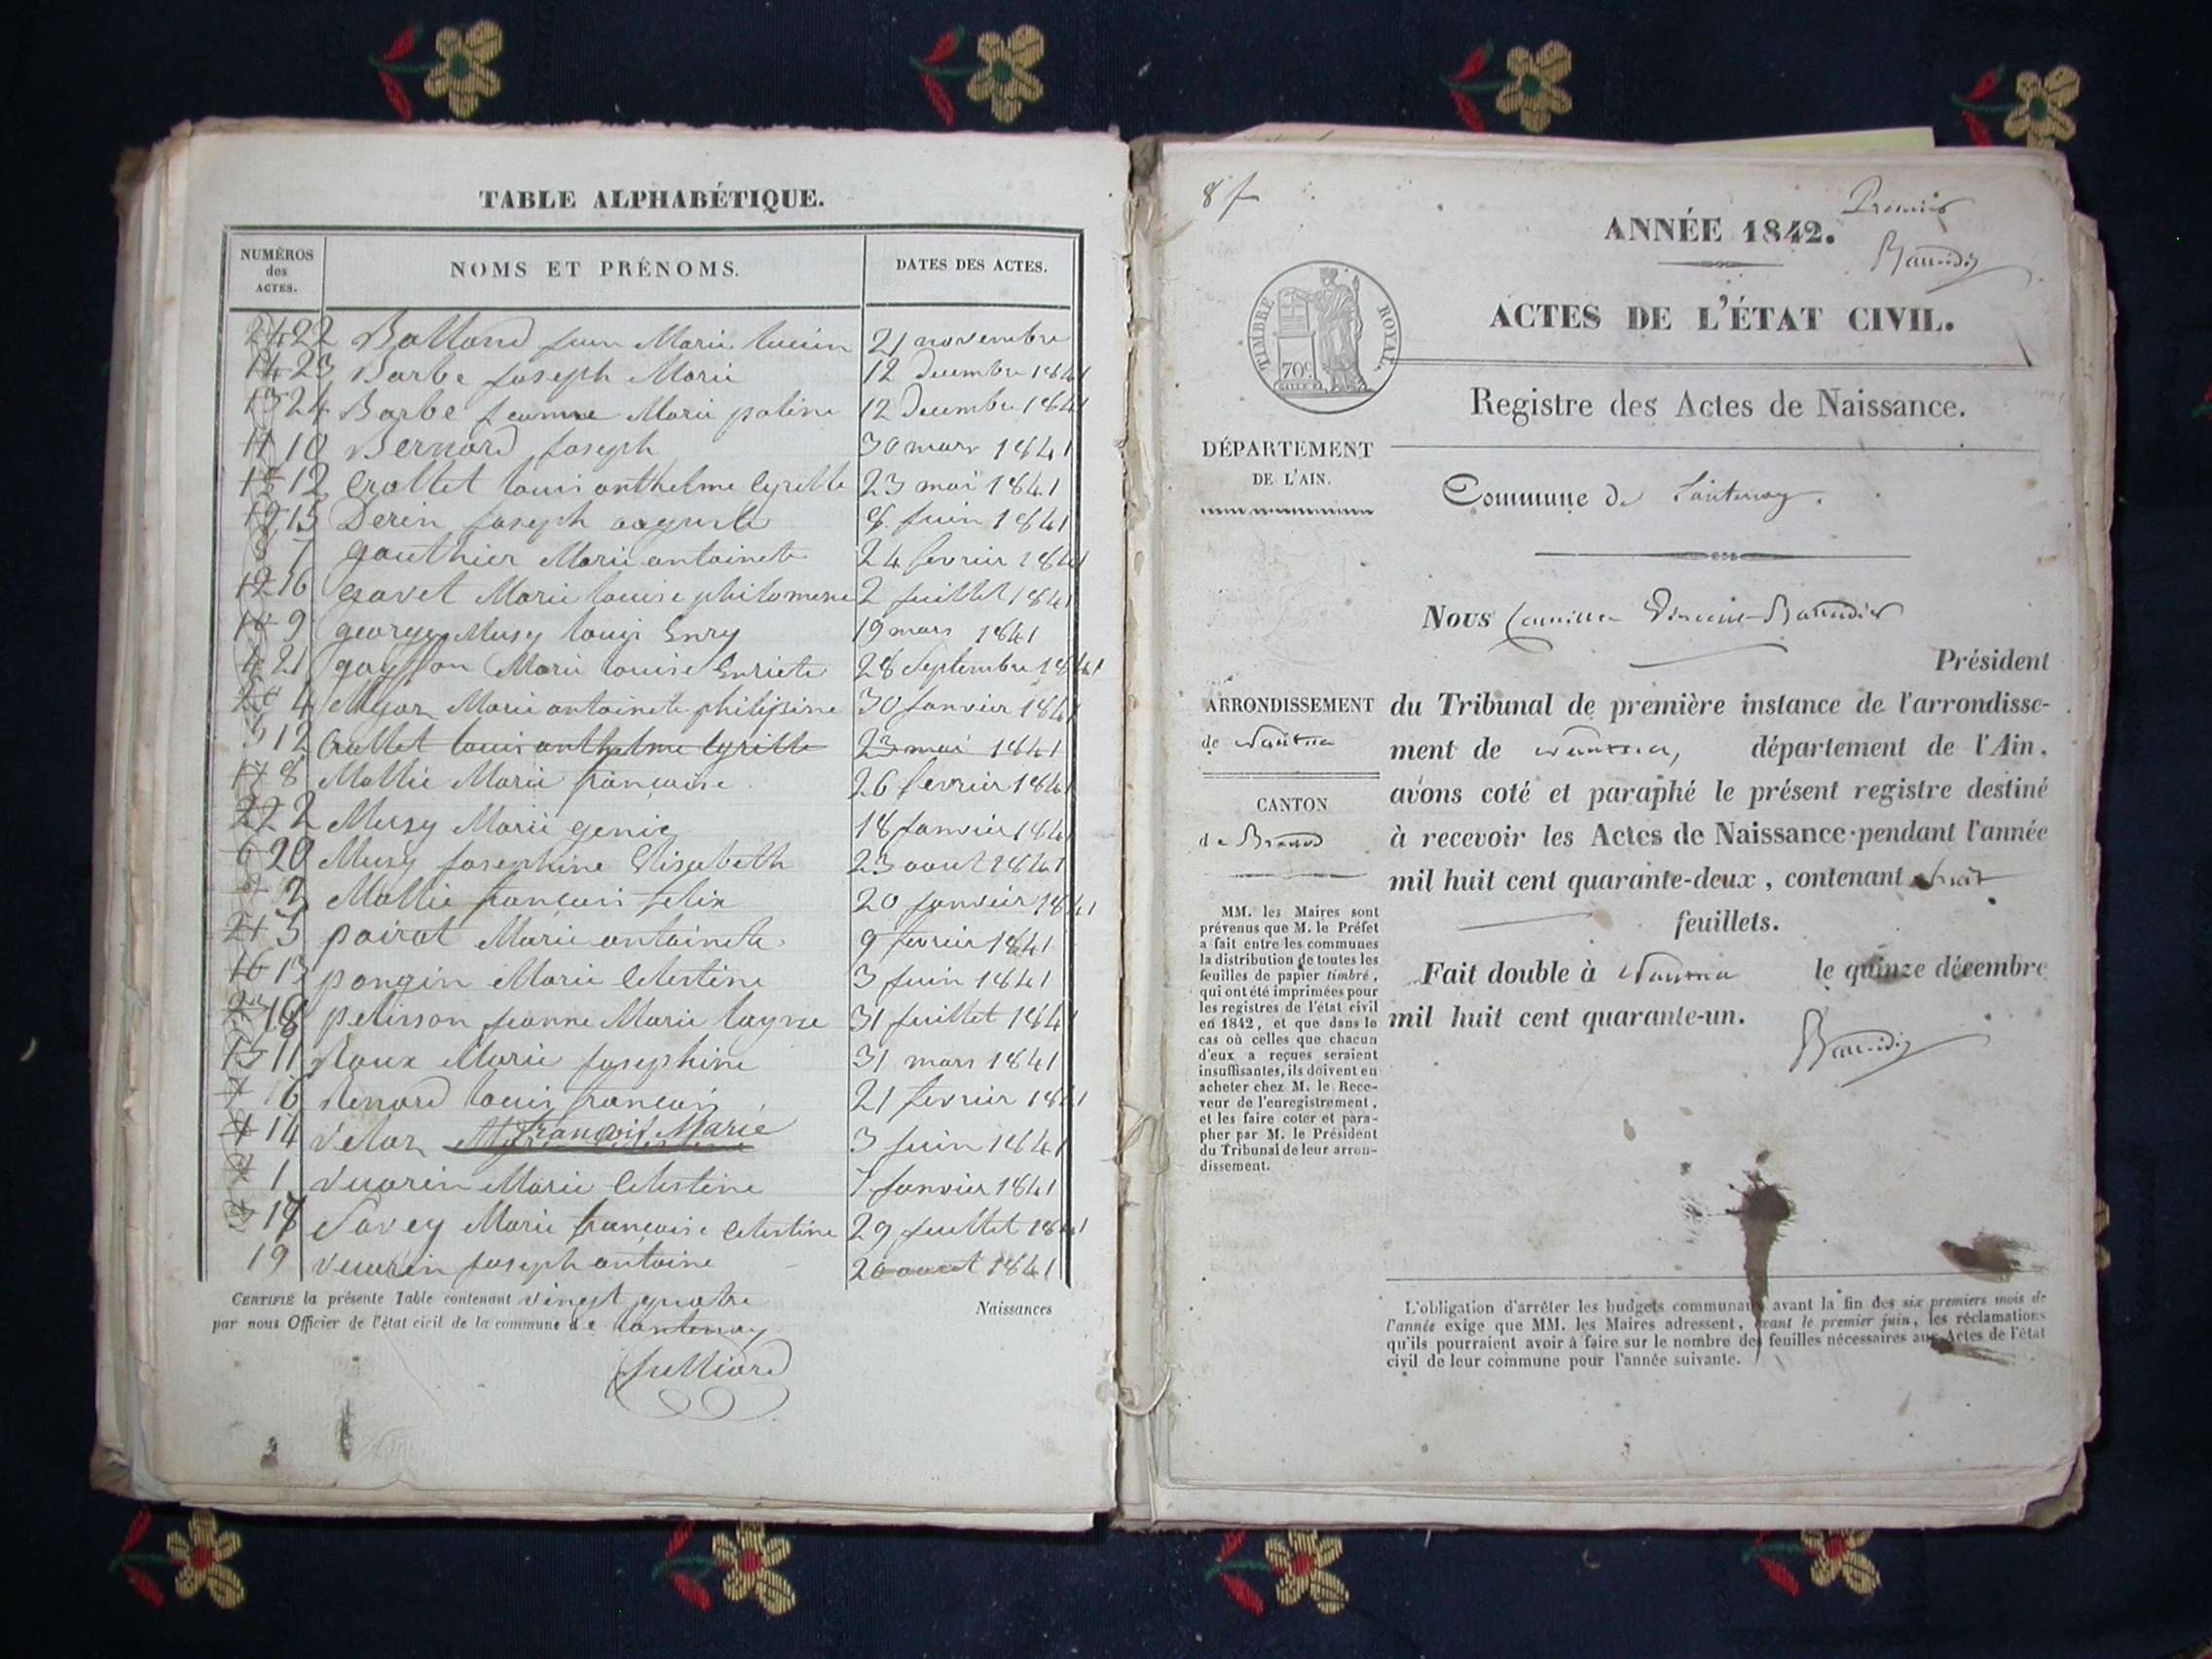 TABLE ALPHABÉTIQUE.
NUMÉROS
des
ACTES.
NOMS ET PRÉNOMS.
DATES DES ACTES.
22 Balland jean Marie lucien 21 novembre
23 Barbe joseph Marie 12 decembre 1841
24 Barbe jeanne Marie poline 12 decembre 1841
10 Bernard joseph 30 mars 1841
12 Crollet louis anthelme Cyrille 23 mai 1841
15 Derin joseph auguste 8 juin 1841
7 gauthier Marie antoinete 24 fevrier 1841
16 Marie louise philomene 2 juillet 1841
9 georges Musy Enry 19 mars 1841
21 Marie louise Enriete 28 Septembre 1841
4 Marie antoinete philipine 30 janvier 1841
12 Crollet louis anthelme Cyrille 23 mai 1841
8 Mollie Marie françoise 26 fevrier 1841
2 Musy Marie genie 18 janvier 1841
20 Musy josephine Elisabeth 23 aout 1841
Mollie françois felix 20 janvier 1841
5 poirot Marie antoinete 9 fevrier 1841
13 pongin Marie Celestine 3 juin 1841
18 pelisson jeanne Marie 31 juillet 1841
11 Roux Marie josephine 31 mars 1841
6 Renard louis françois 21 fevrier 1841
14 françois Marie 3 juin 1841
1 vuarin Marie Celestine 7 janvier 1841
17 Savey Marie françoise Celestine 29 juillet 1841
19 vuarin joseph antoine 20 aout 1841
CERTIFIÉ la présente Table contenant vingt quatre Naissances
par nous Officier de l'état civil de la commune de lantenay
Julliard
8 f
Premier
ANNÉE 1842.
Baudin
ACTES DE L'ÉTAT CIVIL.
TIMBRE ROYAL.
70c
Registre des Actes de Naissance.
DÉPARTEMENT
DE L'AIN.
Commune de Lantenay.
Nous
Président
ARRONDISSEMENT
de Nantua
CANTON
de Brenod
du Tribunal de première instance de l'arrondisse-
ment de Nantua, département de l'Ain,
avons coté et paraphé le présent registre destiné
à recevoir les Actes de Naissance pendant l'année
mil huit cent quarante-deux, contenant huit
feuillets.
Fait double à Nantua le quinze décembre
mil huit cent quarante-un.
MM. les Maires sont
prévenus que M. le Préfet
a fait entre les communes
la distribution de toutes les
feuilles de papier timbré,
qui ont été imprimées pour
les registres de l'état civil
en 1842, et que dans le
cas où celles que chacun
d'eux a reçues seraient
insuffisantes, ils doivent en
acheter chez M. le Rece-
veur de l'enregistrement,
et les faire coter et para-
pher par M. le Président
du Tribunal de leur arron-
dissement.
L'obligation d'arrêter les budgets communaux avant la fin des six premiers mois de
l'année exige que MM. les Maires adressent, avant le premier juin, les réclamations
qu'ils pourraient avoir à faire sur le nombre des feuilles nécessaires aux Actes de l'état
civil de leur commune pour l'année suivante.